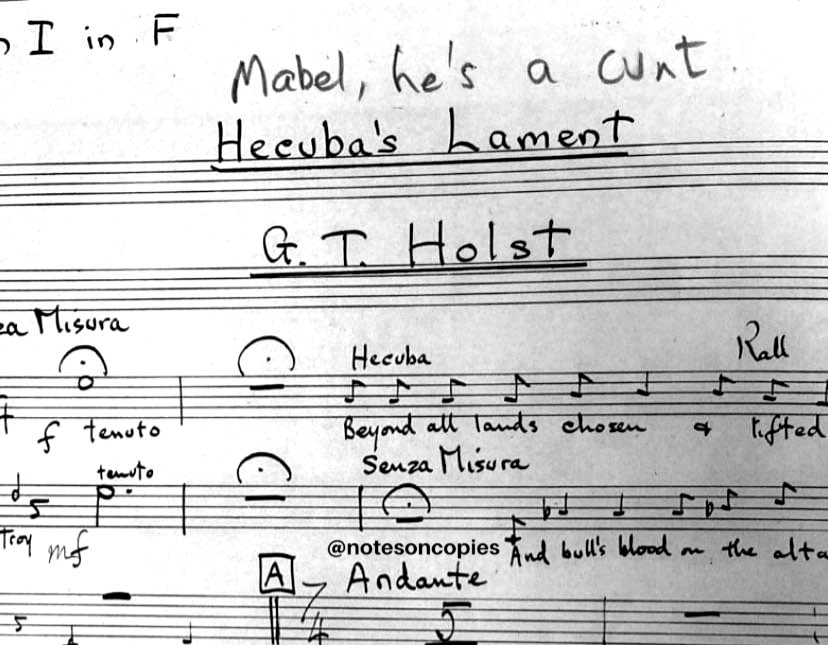 I in F
Mabel, he's a cunt.
Hecuba's Lament
G. T. Holst
Misura
Hecuba
Rall
f tenuto
Beyond all lands chosen & lifted
tenuto
Senza Misura
Troy mf
@notesoncopies
And bull's blood on the alta
A 7/4 Andante
5